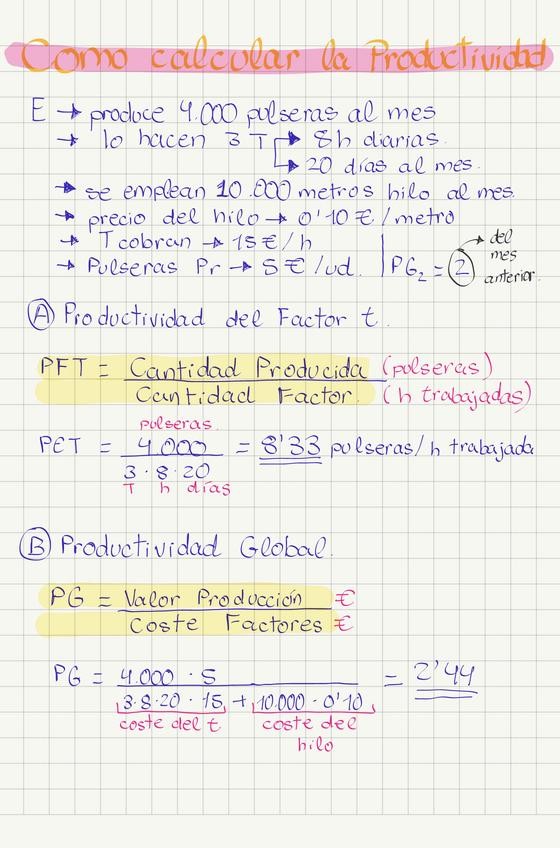 Como calcular la Productividad
E → produce 4.000 pulseras al mes
→ lo hacen 3 T → 8h diarias.
→ 20 días al mes.
→ se emplean 10.000 metros hilo al mes.
→ precio del hilo → 0'10 € / metro
→ T cobran → 15 € / h
→ Pulseras Pr → 5 € / ud. PG₂ = 2 → del mes anterior.
A Productividad del Factor t.
PFT = Cantidad Producida (pulseras)
Cantidad Factor. (h trabajadas)
pulseras.
PCT = 4.000 = 8'33 pulseras / h trabajada
3 · 8 · 20
T h días
B Productividad Global.
PG = Valor Producción €
Coste Factores €
PG = 4.000 · 5 = 2'44
3·8·20 · 15 + 10.000 · 0'10
coste del t. coste del
hilo